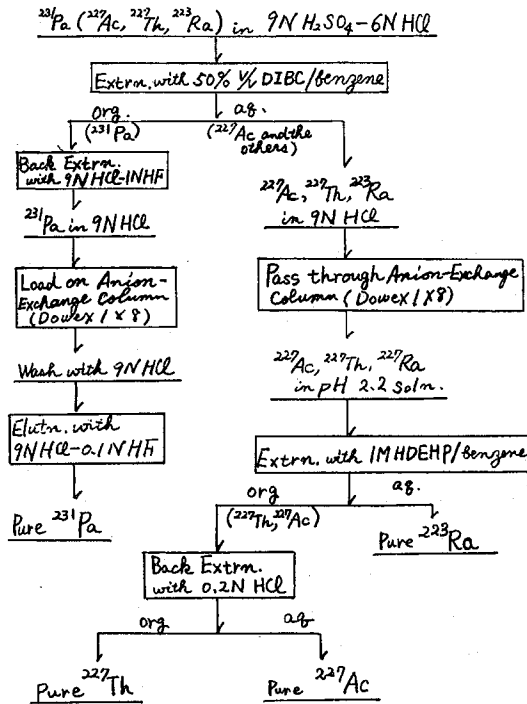 ²³¹Pa (²²⁷Ac, ²²⁷Th, ²²³Ra) in 9N H₂SO₄-6N HCl
Extrn. with 50% V/V DIBC/benzene
org.
(²³¹Pa)
aq.
(²²⁷Ac and the
others)
Back Extrn.
with 9NHCl-1NHF
²³¹Pa in 9NHCl
Load on Anion-
Exchange Column
(Dowex 1 X 8)
Wash with 9NHCl
Elutn. with
9NHCl-0.1NHF
Pure ²³¹Pa
²²⁷Ac, ²²⁷Th, ²²³Ra
in 9N HCl
Pass through Anion-Exchange
Column (Dowex 1 X 8)
²²⁷Ac, ²²⁷Th, ²²⁷Ra
in pH 2.2 soln.
Extrn. with 1M HDEHP/benzene
org
(²²⁷Th, ²²⁷Ac)
aq.
Pure ²²³Ra
Back Extrn.
with 0.2N HCl
org
aq
Pure ²²⁷Th
Pure ²²⁷Ac